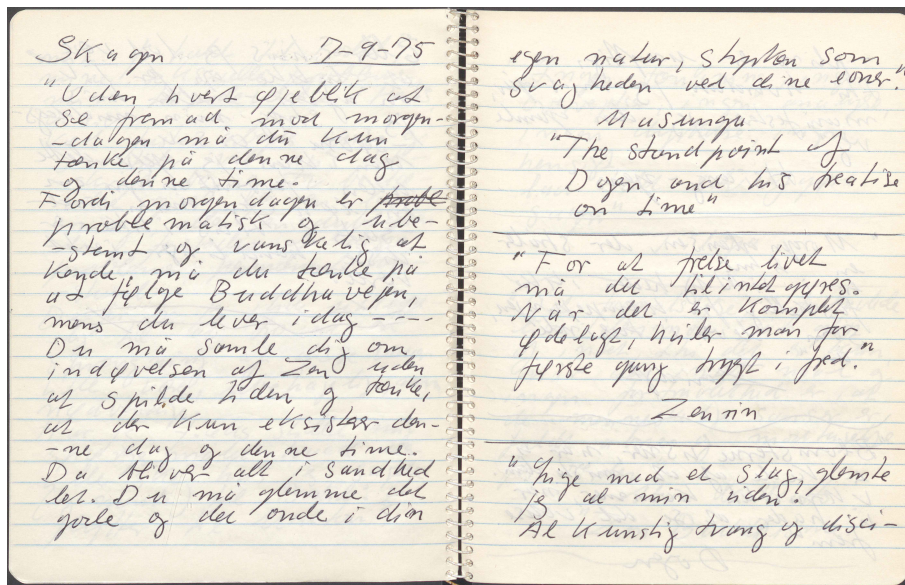 Skagen 7-9-75
"Uden hvert øjeblik at
se fremad mod morgen-
-dagen må du kun
tænke på denne dag
og denne time.
Fordi morgendagen er
problematisk og ube-
-stemt og vanskelig at
kende, må du tænke på
at følge Buddhavejen,
mens du lever idag ----
Du må samle dig om
indøvelsen af Zen uden
at spilde tiden og tænke,
at der kun eksisterer den-
-ne dag og denne time.
Da bliver alt i sandhed
let. Du må glemme det
gode og det onde i din
egen natur, styrken som
svagheden ved dine evner."
Masunga
"The standpoint of
Dogen and his treatise
on time"
"For at frelse livet
må det tilintetgøres.
Når det er komplet
ødelagt, hviler man for
første gang trygt i fred."
Zenrin
"Lige med et slag, glemte
jeg al min viden.
Al kunstig trang og disci-